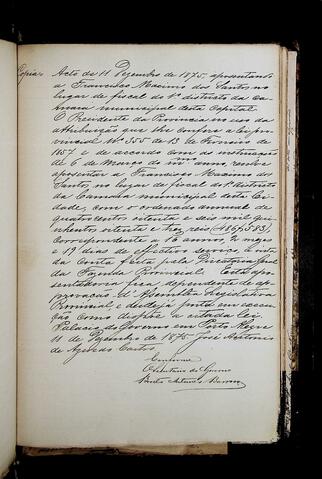 Copia. Acto de 11 Dezembro de 1875, aposentando
a Francisco Maximo dos Santos no
lugar de fiscal do 1º districto da Ca-
mara municipal desta Capital.
O Presidente da Provincia no uso da
attribuição que lhe confere a lei pro-
vincial Nº 355 de 13 de Fevereiro de
1857 e de accordo com as instrucções
de 6 de Março do mmo anno, resolve
aposentar a Francisco Maximo dos
Santos, no lugar de fiscal do 1º districto
da Camara municipal desta Ci-
dade, com o ordenado annual de
quatrocentos oitenta e seis mil qui-
nhentos oitenta e trez reis (486$583),
correspondente a 16 annos, 2 mezes
e 19 dias de effectivo serviço, á vista
da Conta feita pela Directoria Geral
da Fazenda Provincial. Esta apo-
sentadoria fica dependente de ap-
provação d'Assembléa Legislativa
Provincial e desde já posta em execu-
ção como dispõe a citada lei.
Palacio do Governo em Porto Alegre
11 de Dezembro de 1875 José Antonio
de Azevedo Castro.
Conforme
O Secretario do Governo